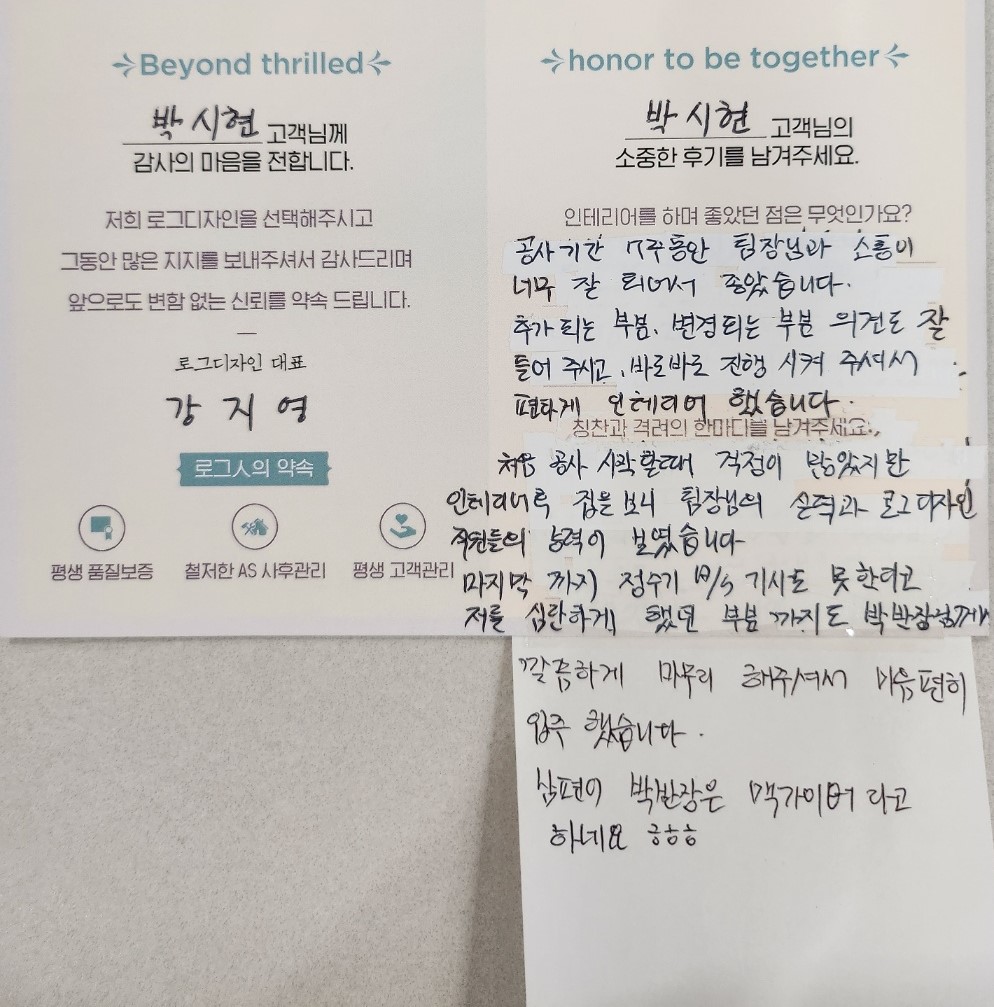 Beyond thrilled
박시현 고객님께
감사의 마음을 전합니다.
저희 로그디자인을 선택해주시고
그동안 많은 지지를 보내주셔서 감사드리며
앞으로도 변함 없는 신뢰를 약속 드립니다.
로그디자인 대표
강지영
로그人의 약속
평생 품질보증
철저한 AS 사후관리
평생 고객관리
honor to be together
박시현 고객님의
소중한 후기를 남겨주세요.
인테리어를 하며 좋았던 점은 무엇인가요?
공사기간 7주동안 팀장님과 소통이
너무 잘 되어서 좋았습니다.
추가되는 부분, 변경되는 부분 의견도 잘
들어 주시고, 바로바로 진행 시켜 주셔서
편하게 인테리어 했습니다.
칭찬과 격려의 한마디를 남겨주세요.
처음 공사 시작할때 걱정이 많았지만
인테리어후 집을 보니 팀장님의 실력과 로그디자인
직원들의 능력이 보였습니다
마지막 까지 정수기 A/S 기사도 못한다고
저를 심란하게 했던 부분 까지도 박반장님께서
깔끔하게 마무리 해주셔서 마음편히
입주 했습니다.
남편이 박반장은 맥가이버 라고
하네요 ㅎㅎㅎ